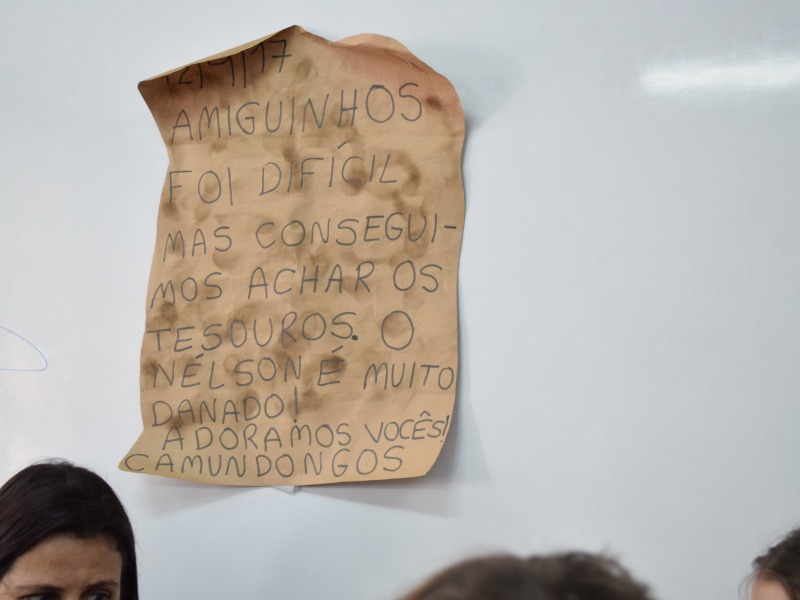 12/9/17
AMIGUINHOS
FOI DIFÍCIL
MAS CONSEGUI-
MOS ACHAR OS
TESOUROS. O
NÉLSON É MUITO
DANADO!
ADORAMOS VOCÊS!
CAMUNDONGOS